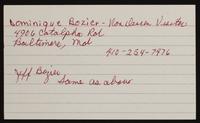 Dominique Bozier - Von Deun Visitor
4906 Catalpha Rd
Baltimore, Md
410-254-7976
Jeff Bozier
Same as above